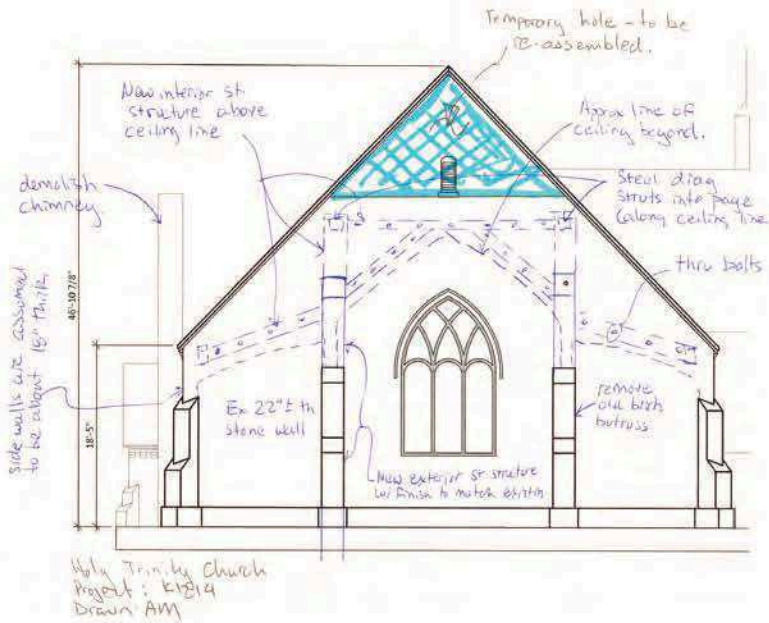 Temporary hole - to be
re-assembled.
New interior st.
structure above
ceiling line
Approx line of
ceiling beyond.
demolish
chimney
Steel diag
struts into page
(along ceiling line
thru bolts
46'-10 7/8"
18'-5"
side walls are assumed
to be about 18" thick
Ex 22"± th
stone wall
remove
old
butruss
New exterior st structure
w/ finish to match existin
Holy Trinity Church
Project:
Drawn AM